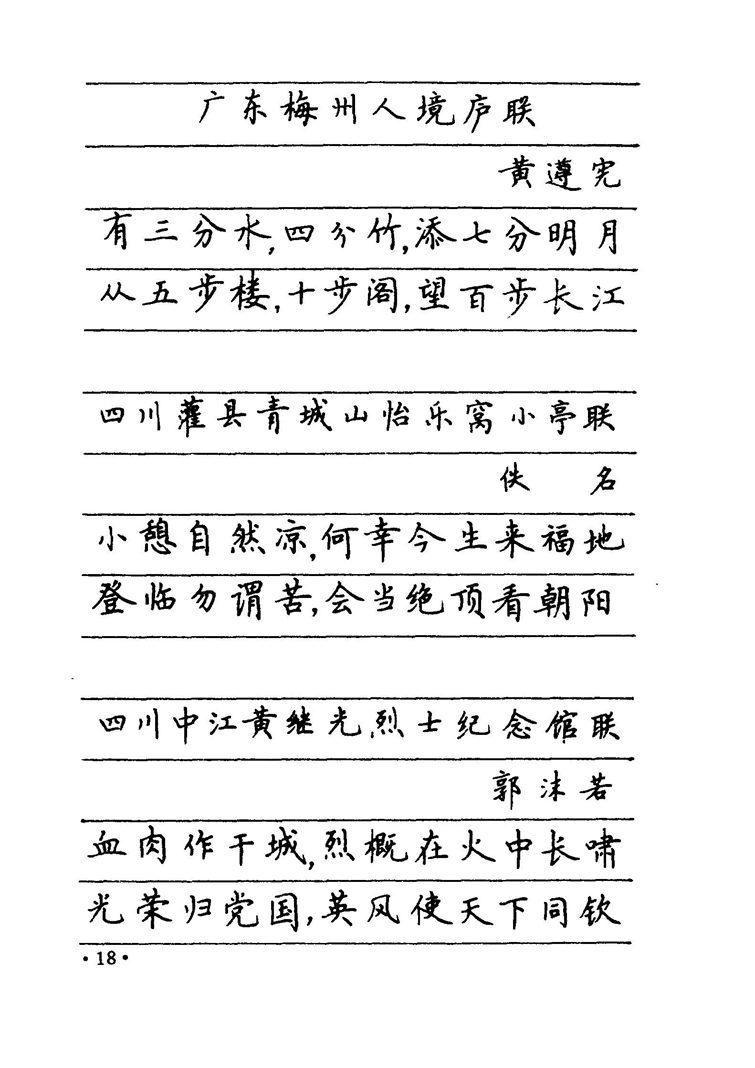 广东梅州人境庐联
黄遵宪
有三分水,四分竹,添七分明月
从五步楼,十步阁,望百步长江
四川灌县青城山怡乐窝小亭联
佚名
小憩自然凉,何幸今生来福地
登临勿谓苦,会当绝顶看朝阳
四川中江黄继光烈士纪念馆联
郭沫若
血肉作干城,烈概在火中长啸
光荣归党国,英风使天下同钦
·18·